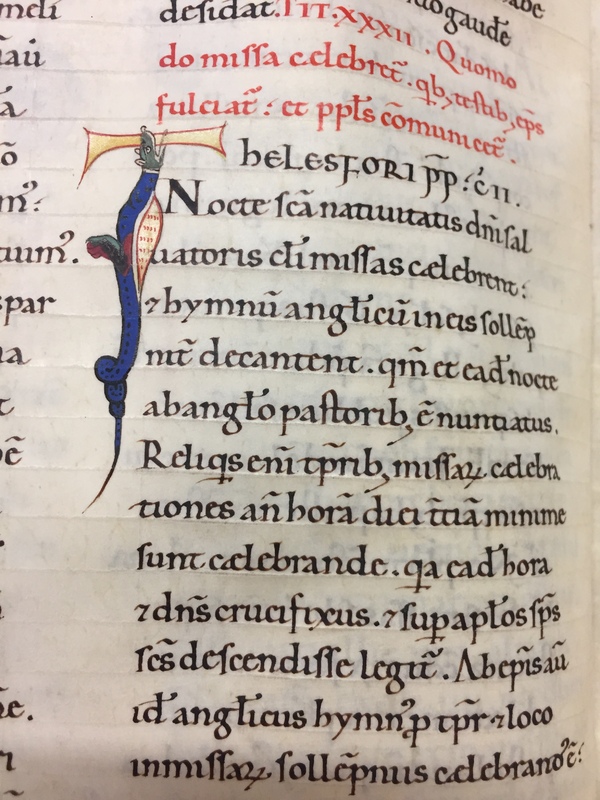 desidat. TIT. XXXII. Quomo
do missa celebret̄. qb; testib; ep̄s
fulciat̄: et pp̄ls cōmunicet̄.
THELESFORI P̄P: C̄ II.
Nocte sc̄a natiuitatis dn̄i sal
uatoris cl̄i missas celebrent:
⁊ hymnū anglicū in eis sollēp
nit̄ decantent. qm̄ et ead̄ nocte
ab angl̄o pastorib; ē nuntiatus.
Reliq̄s eni tp̄rib; missaꝝ celebra
tiones an̄ horā diei tc̄iā minime
sunt celebrande. qa ead̄ hora
⁊ dn̄s crucifixus. ⁊ sup apl̄os sp̄s
sc̄s descendisse legit̄. Ab ep̄is aū
id̄ anglicus hymn⁹ ꝓ tp̄r ⁊ loco
in missaꝝ sollēpniis celebrand⁹ ē: